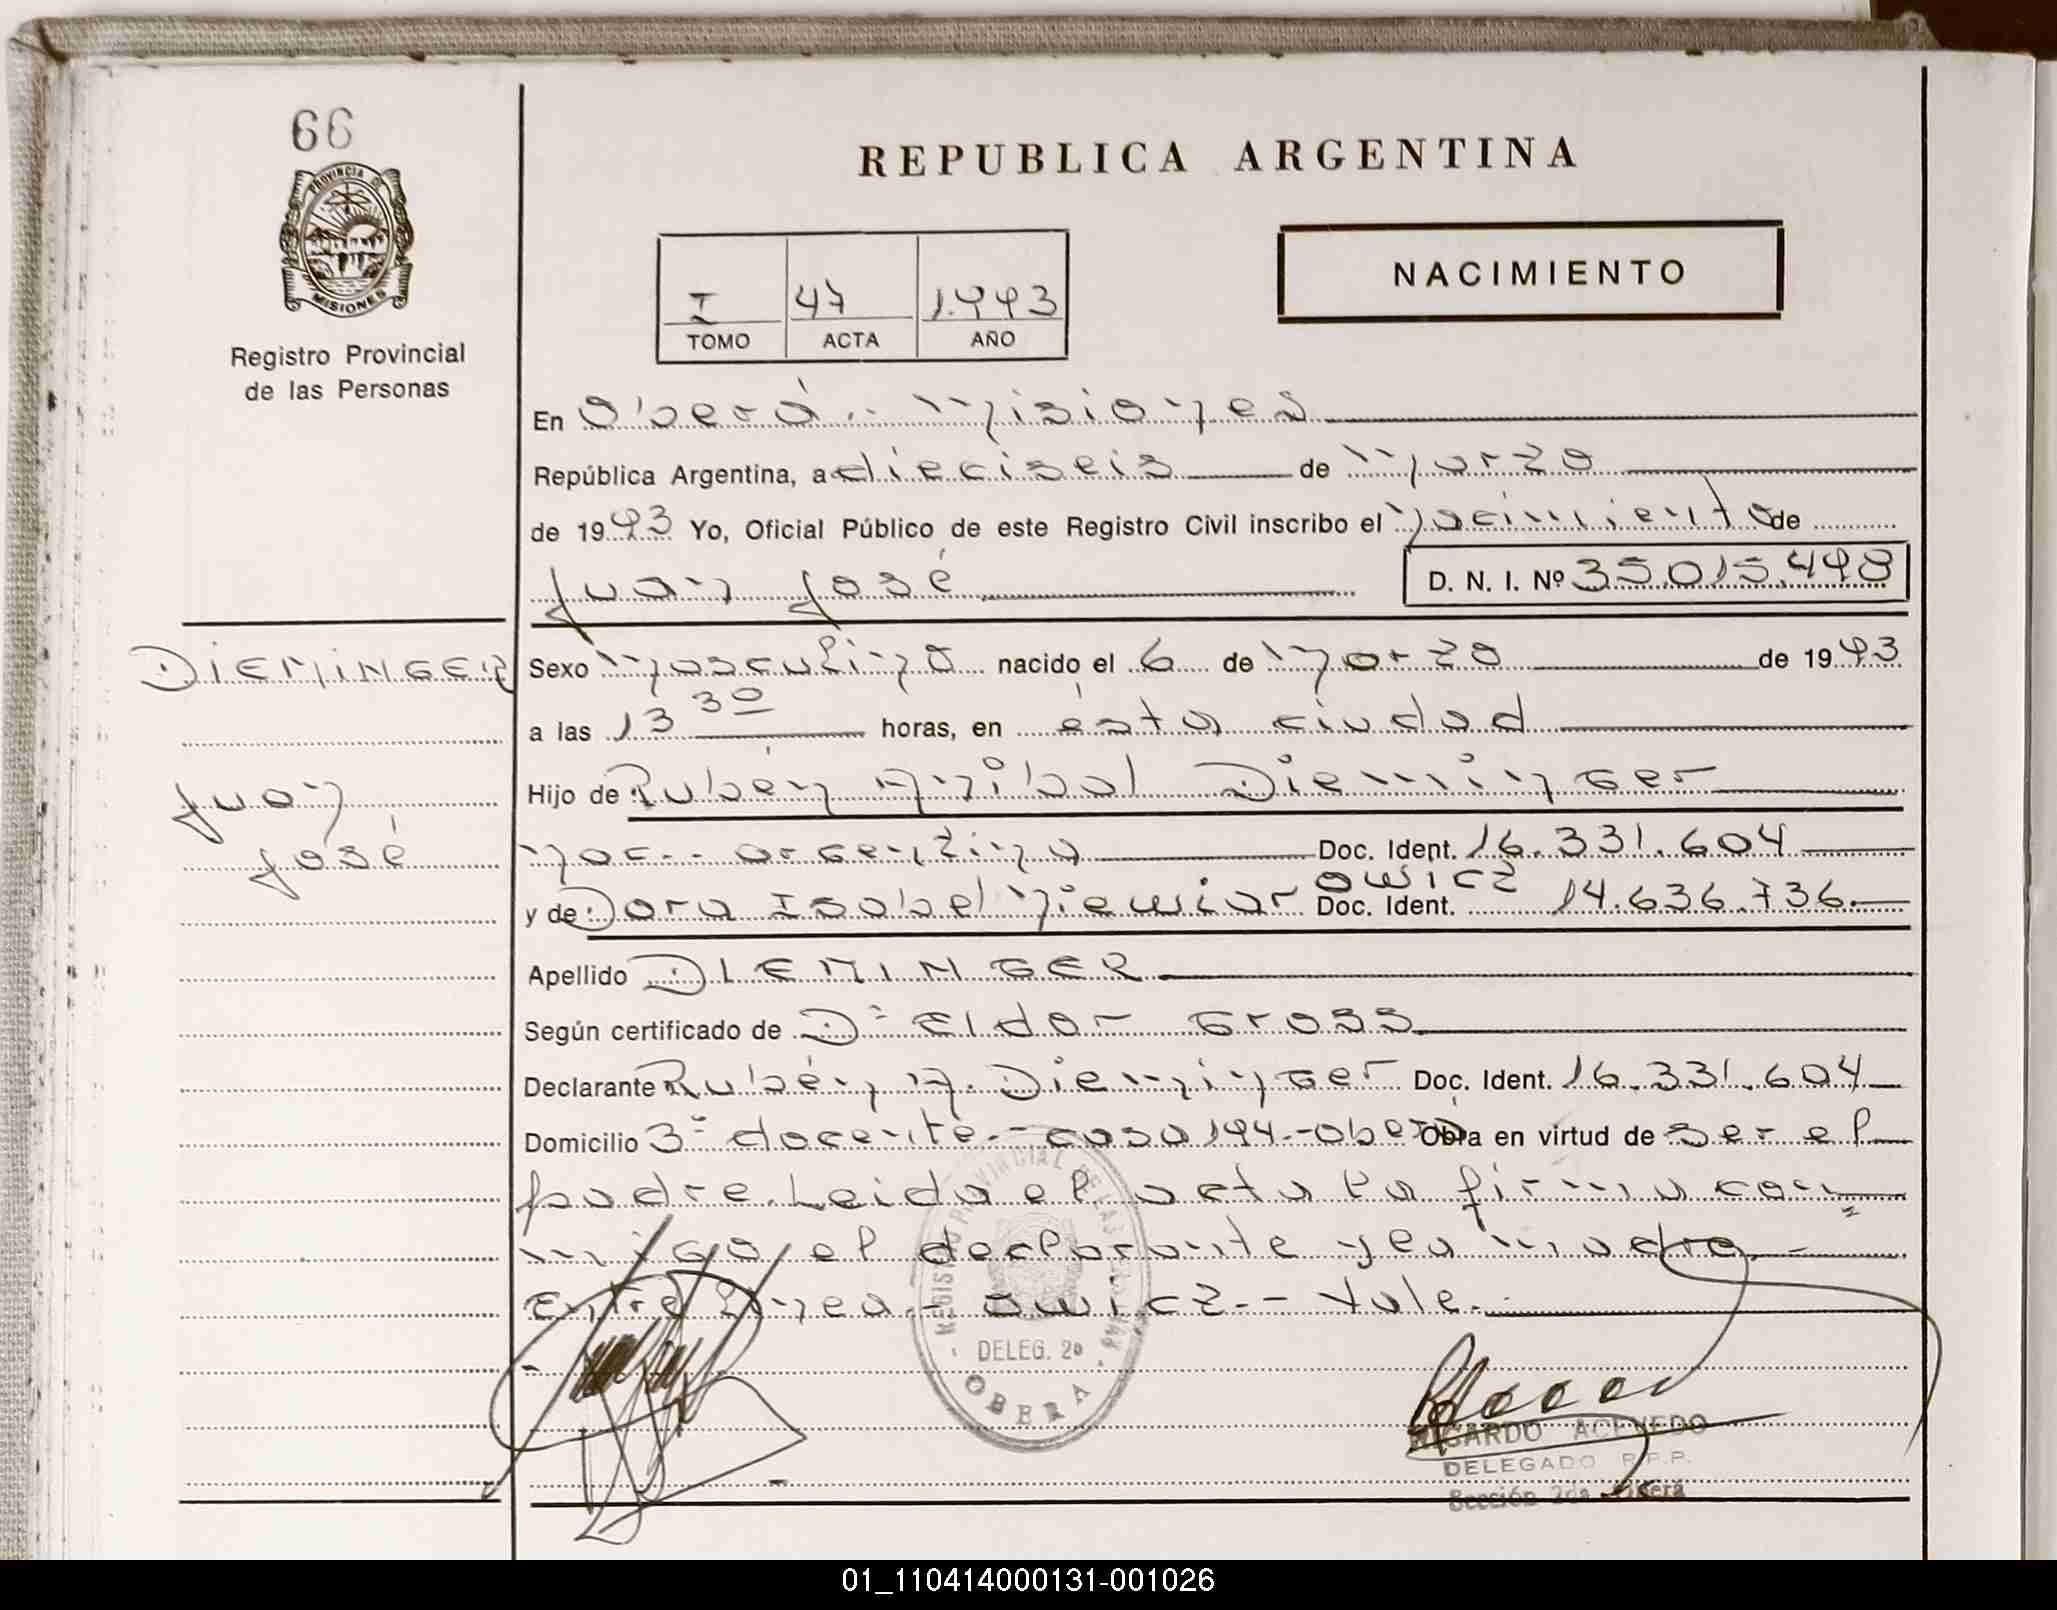 66
REPUBLICA ARGENTINA
PROVINCIA DE
MISIONES
NACIMIENTO
I 47 1.993
TOMO ACTA AÑO
Registro Provincial
de las Personas
En Oberá.- Misiones
República Argentina, a dieciseis de Marzo
de 1993 Yo, Oficial Público de este Registro Civil inscribo el Nacimiento de
Juan José D. N. I. Nº 35.015.498
DIEMINGER Sexo Masculino nacido el 6 de Marzo de 1993
a las 13 30 horas, en ésta ciudad
Juan Hijo de Rubén Anibal Dieminger
José Nac.- argentina Doc. Ident. 16.331.604
y de Dora Isabel Niewiarowicz Doc. Ident. 14.636.736.
Apellido DIEMINGER
Según certificado de Dº Eldor Gross
Declarante Rubén A. Dieminger Doc. Ident. 16.331.604
Domicilio 3º docente.- casa 194.- Oberá Obra en virtud de ser el
padre. Leida el acta la firma con
migo el declarante y la madre.-
Entre linea.- owicz.- Vale.-
REGISTRO PROVINCIAL DE LAS PERSONAS
DELEG. 2º
OBERA
RICARDO ACEVEDO
DELEGADO R.P.P.
Sección 2da Oberá
01_110414000131-001026